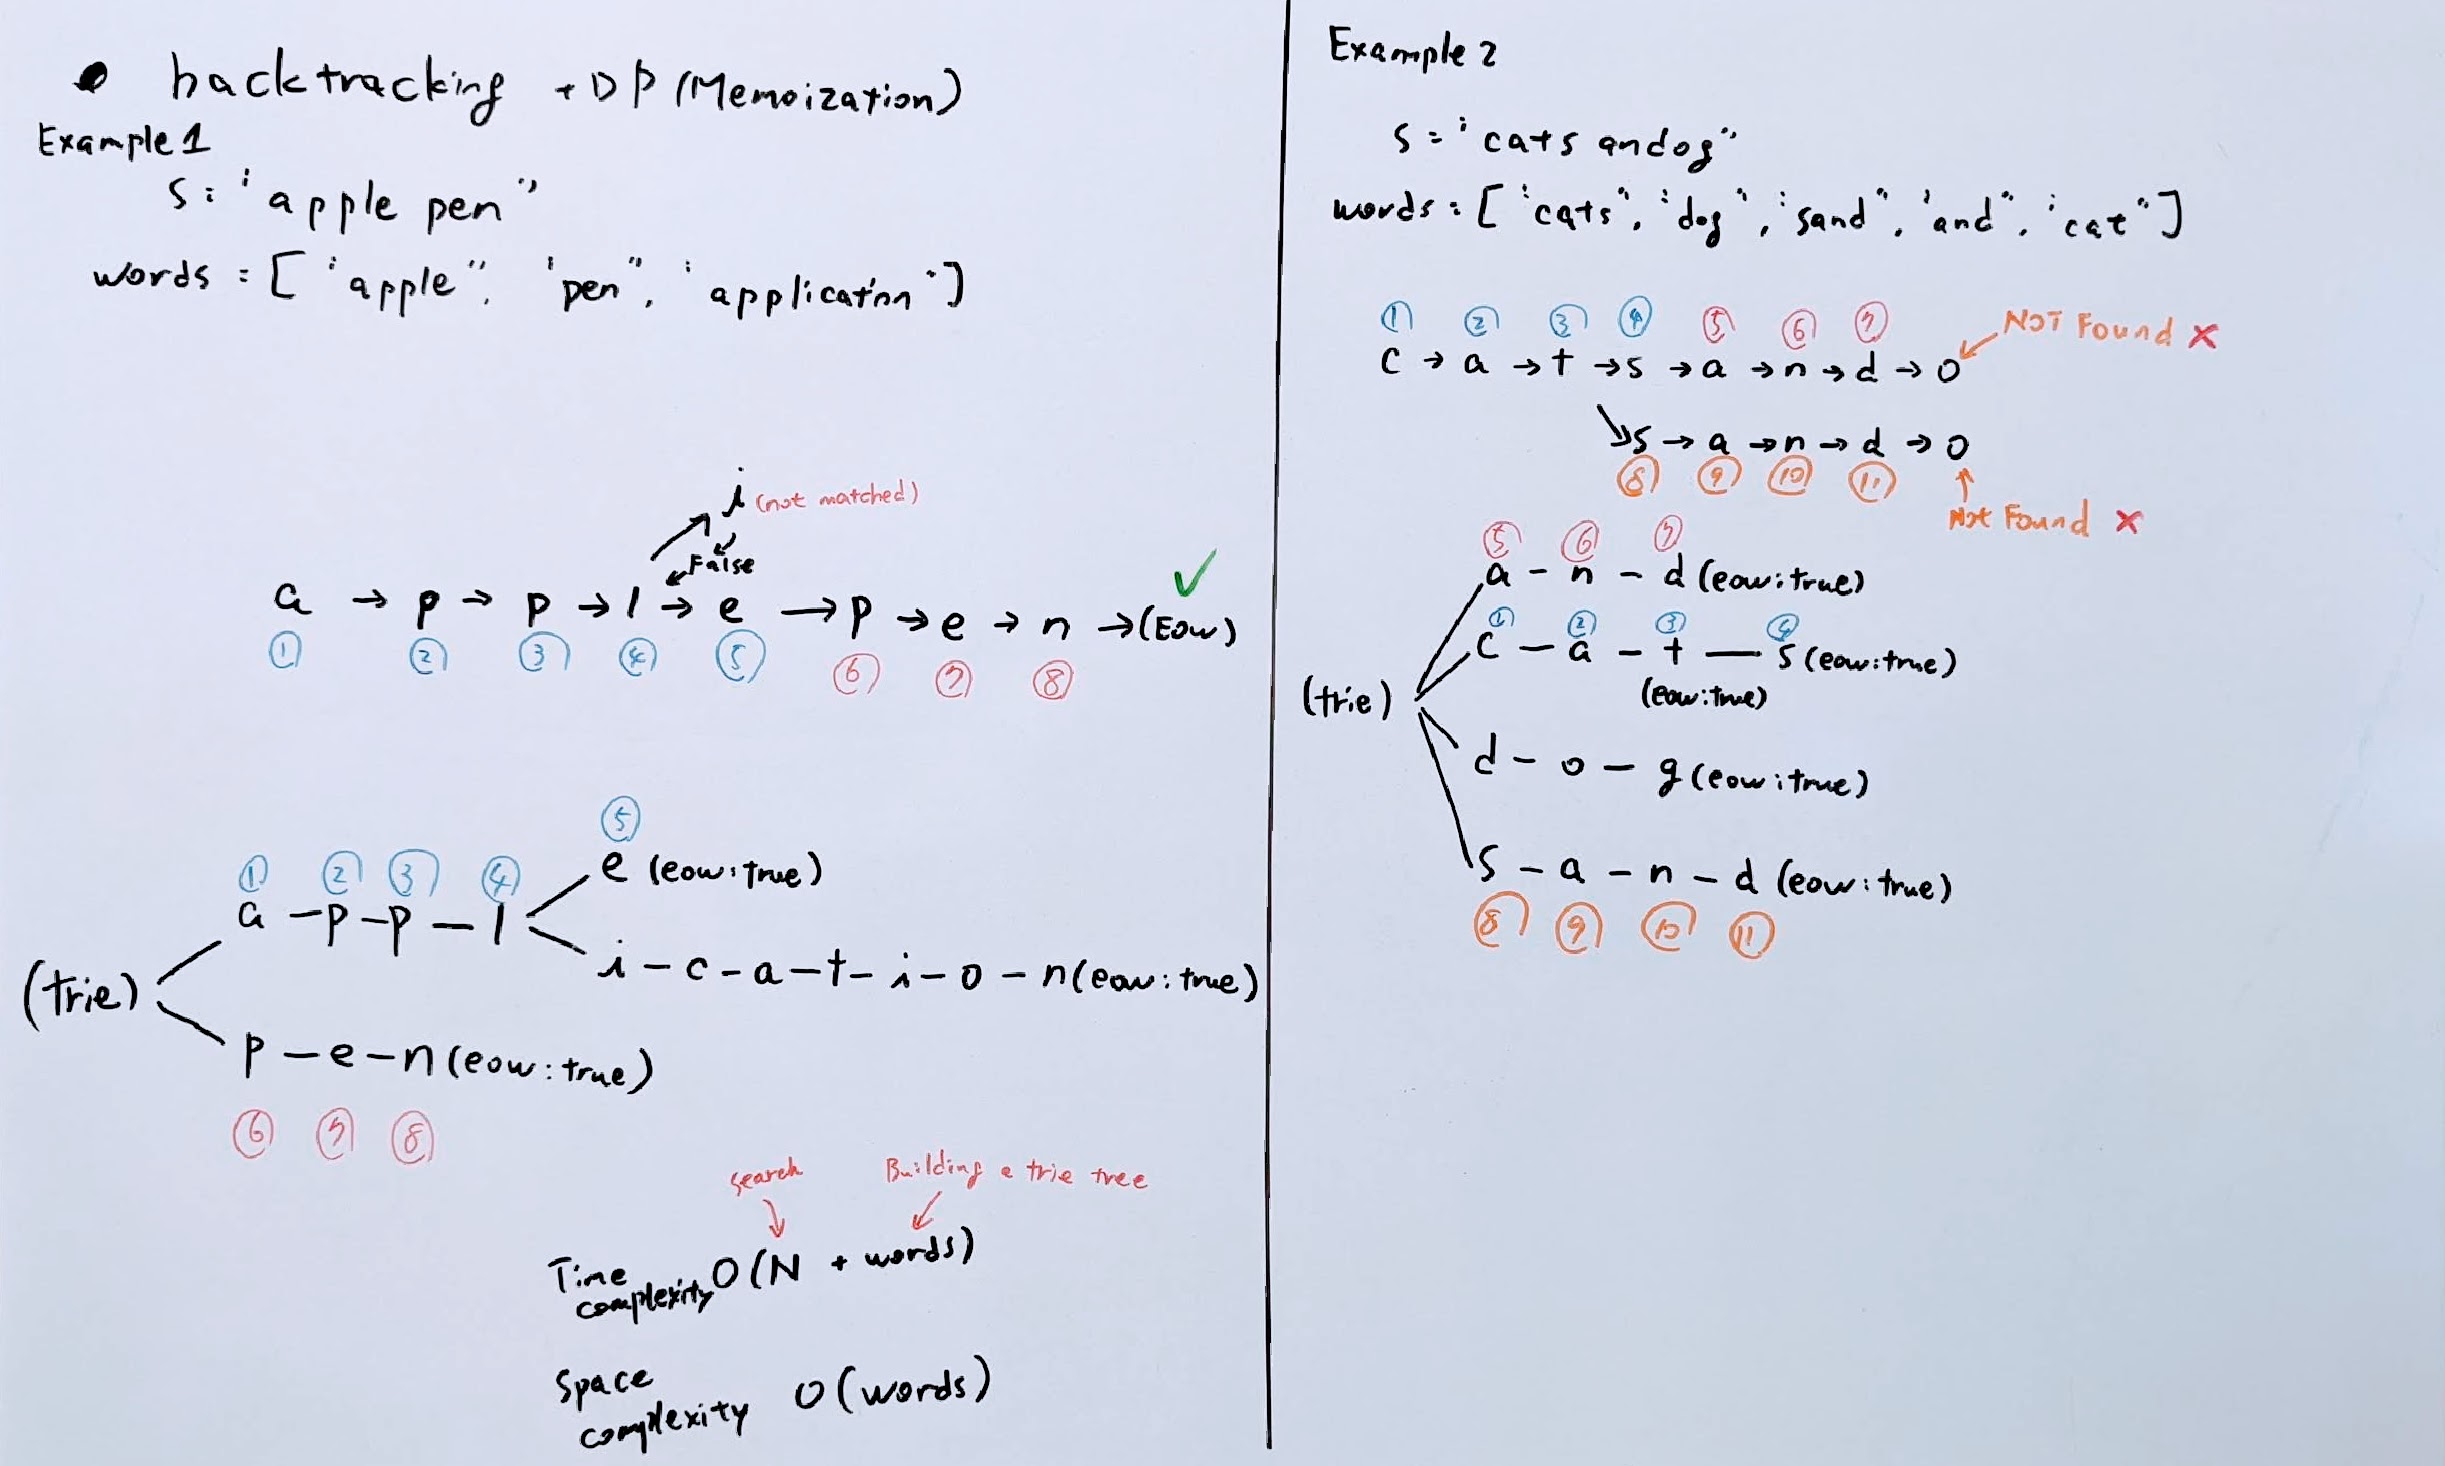 • backtracking + DP (Memoization)
Example 1
s: "apple pen"
words = ["apple", "pen", "application"]
i (not matched)
False
a → p → p → l → e → p → e → n → (EOW) ✓
① ② ③ ④ ⑤ ⑥ ⑦ ⑧
⑤
e (eow: true)
① ② ③ ④
a - p - p - l
i - c - a - t - i - o - n (eow: true)
(trie)
p - e - n (eow: true)
⑥ ⑦ ⑧
search
Building a trie tree
Time complexity O(N + words)
Space complexity O(words)
Example 2
s = "cats andog"
words = ["cats", "dog", "sand", "and", "cat"]
① ② ③ ④ ⑤ ⑥ ⑦
NOT Found ×
c → a → t → s → a → n → d → o
s → a → n → d → o
⑧ ⑨ ⑩ ⑪
Not Found ×
⑤ ⑥ ⑦
a - n - d (eow: true)
① ② ③ ④
c - a - t - s (eow: true)
(eow: true)
(trie)
d - o - g (eow: true)
s - a - n - d (eow: true)
⑧ ⑨ ⑩ ⑪